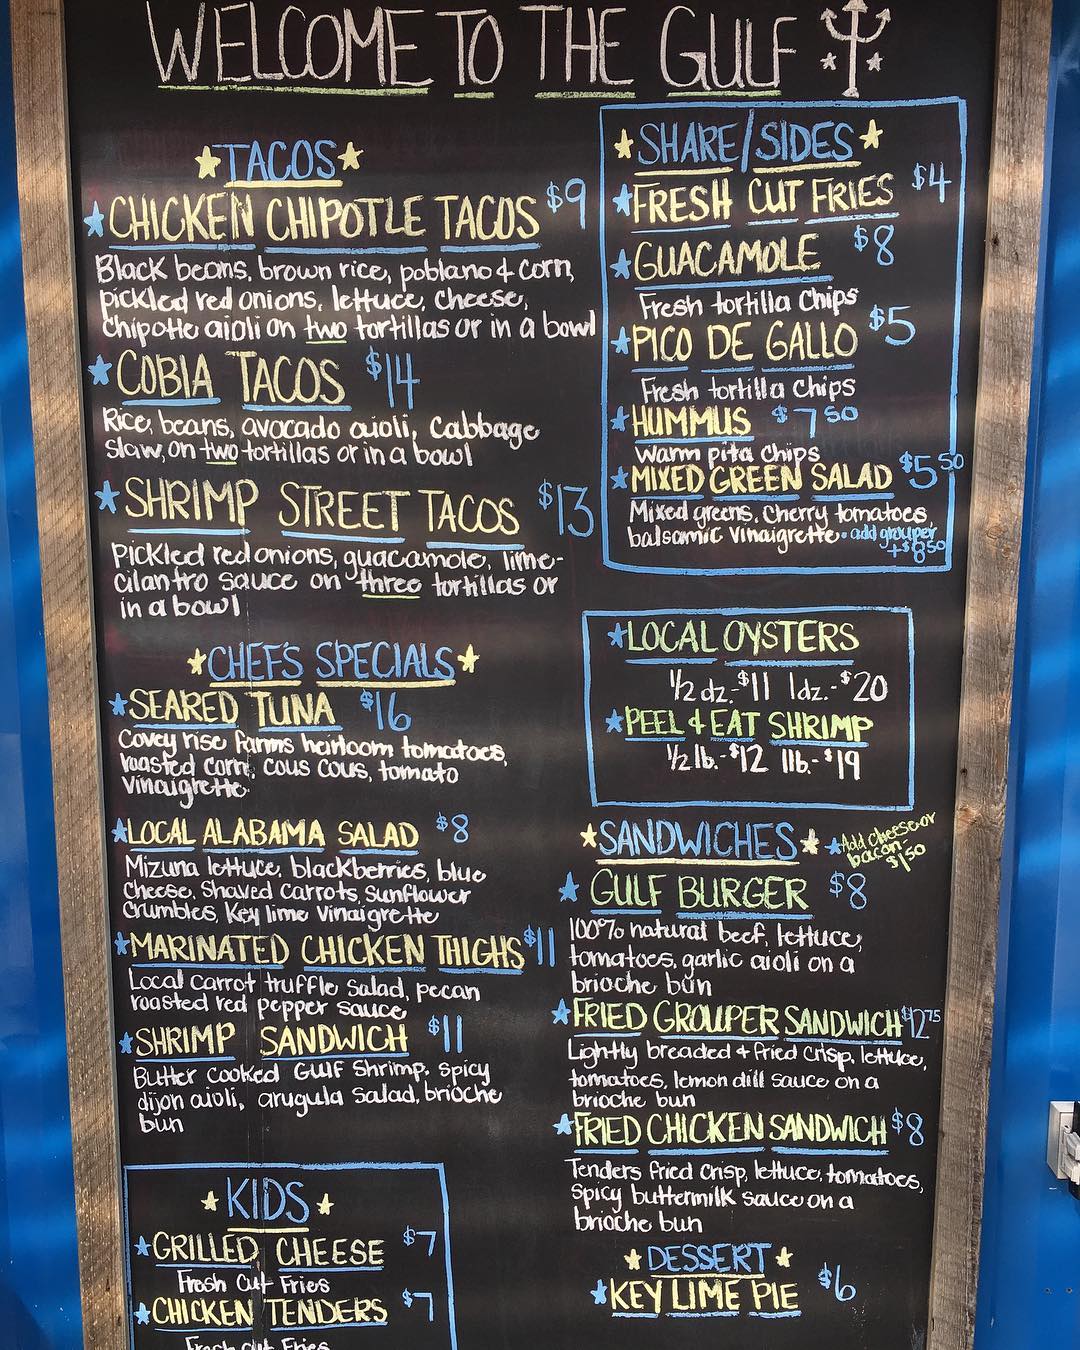 WELCOME TO THE GULF
TACOS
CHICKEN CHIPOTLE TACOS $9
Black beans, brown rice, poblano & corn,
pickled red onions, lettuce, cheese,
chipotle aioli on two tortillas or in a bowl
COBIA TACOS $14
Rice, beans, avocado aioli, cabbage
slaw, on two tortillas or in a bowl
SHRIMP STREET TACOS $13
Pickled red onions, guacamole, lime-
cilantro sauce on three tortillas or
in a bowl
CHEF'S SPECIALS
SEARED TUNA $16
Covey rise farms heirloom tomatoes,
roasted corn, cous cous, tomato
vinaigrette
LOCAL ALABAMA SALAD $8
Mizuna lettuce, blackberries, blue
cheese, shaved carrots, sunflower
crumbles, Key lime vinaigrette
MARINATED CHICKEN THIGHS $11
Local carrot truffle salad, pecan
roasted red pepper sauce
SHRIMP SANDWICH $11
Butter cooked Gulf Shrimp, spicy
dijon aioli, arugula salad, brioche
bun
KIDS
GRILLED CHEESE $7
Fresh Cut Fries
CHICKEN TENDERS $7
Fresh cut Fries
SHARE/SIDES
FRESH CUT FRIES $4
GUACAMOLE $8
Fresh tortilla chips
PICO DE GALLO $5
Fresh tortilla chips
HUMMUS $7 50
warm pita chips
MIXED GREEN SALAD $5 50
Mixed greens, cherry tomatoes
balsamic vinaigrette • add grouper
+$8 50
LOCAL OYSTERS
1/2 dz.-$11 1dz.-$20
PEEL & EAT SHRIMP
1/2 lb.-$12 1lb.-$19
SANDWICHES
Add cheese or
bacon-
$1 50
GULF BURGER $8
100% natural beef, lettuce,
tomatoes, garlic aioli on a
brioche bun
FRIED GROUPER SANDWICH $12 75
Lightly breaded & fried crisp, lettuce,
tomatoes, lemon dill sauce on a
brioche bun
FRIED CHICKEN SANDWICH $8
Tenders fried crisp, lettuce, tomatoes,
spicy buttermilk sauce on a
brioche bun
DESSERT
KEY LIME PIE $6